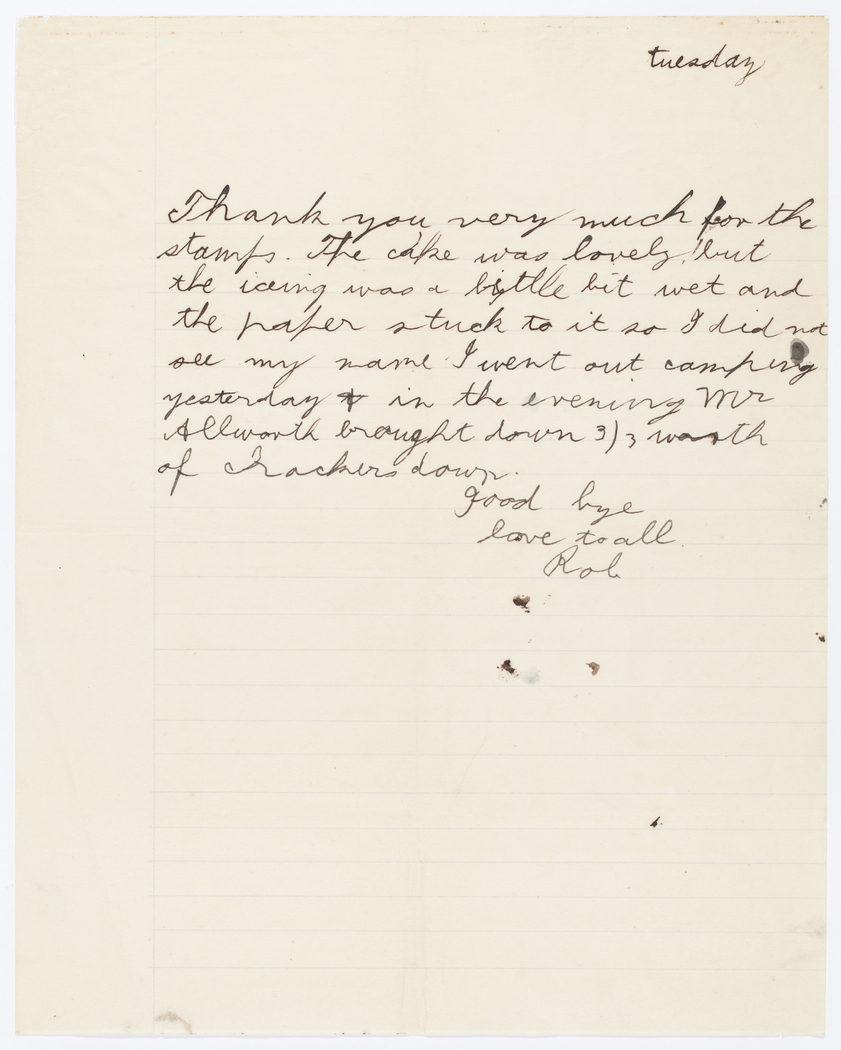 tuesday
Thank you very much for the
stamps. The cake was lovely, but
the iceing was a little bit wet and
the paper stuck to it so I did not
see my name I went out camping
yesterday & in the evening Mr
Allworth brought down 3/3 worth
of Crackers down.
Good bye
love to all.
Rob